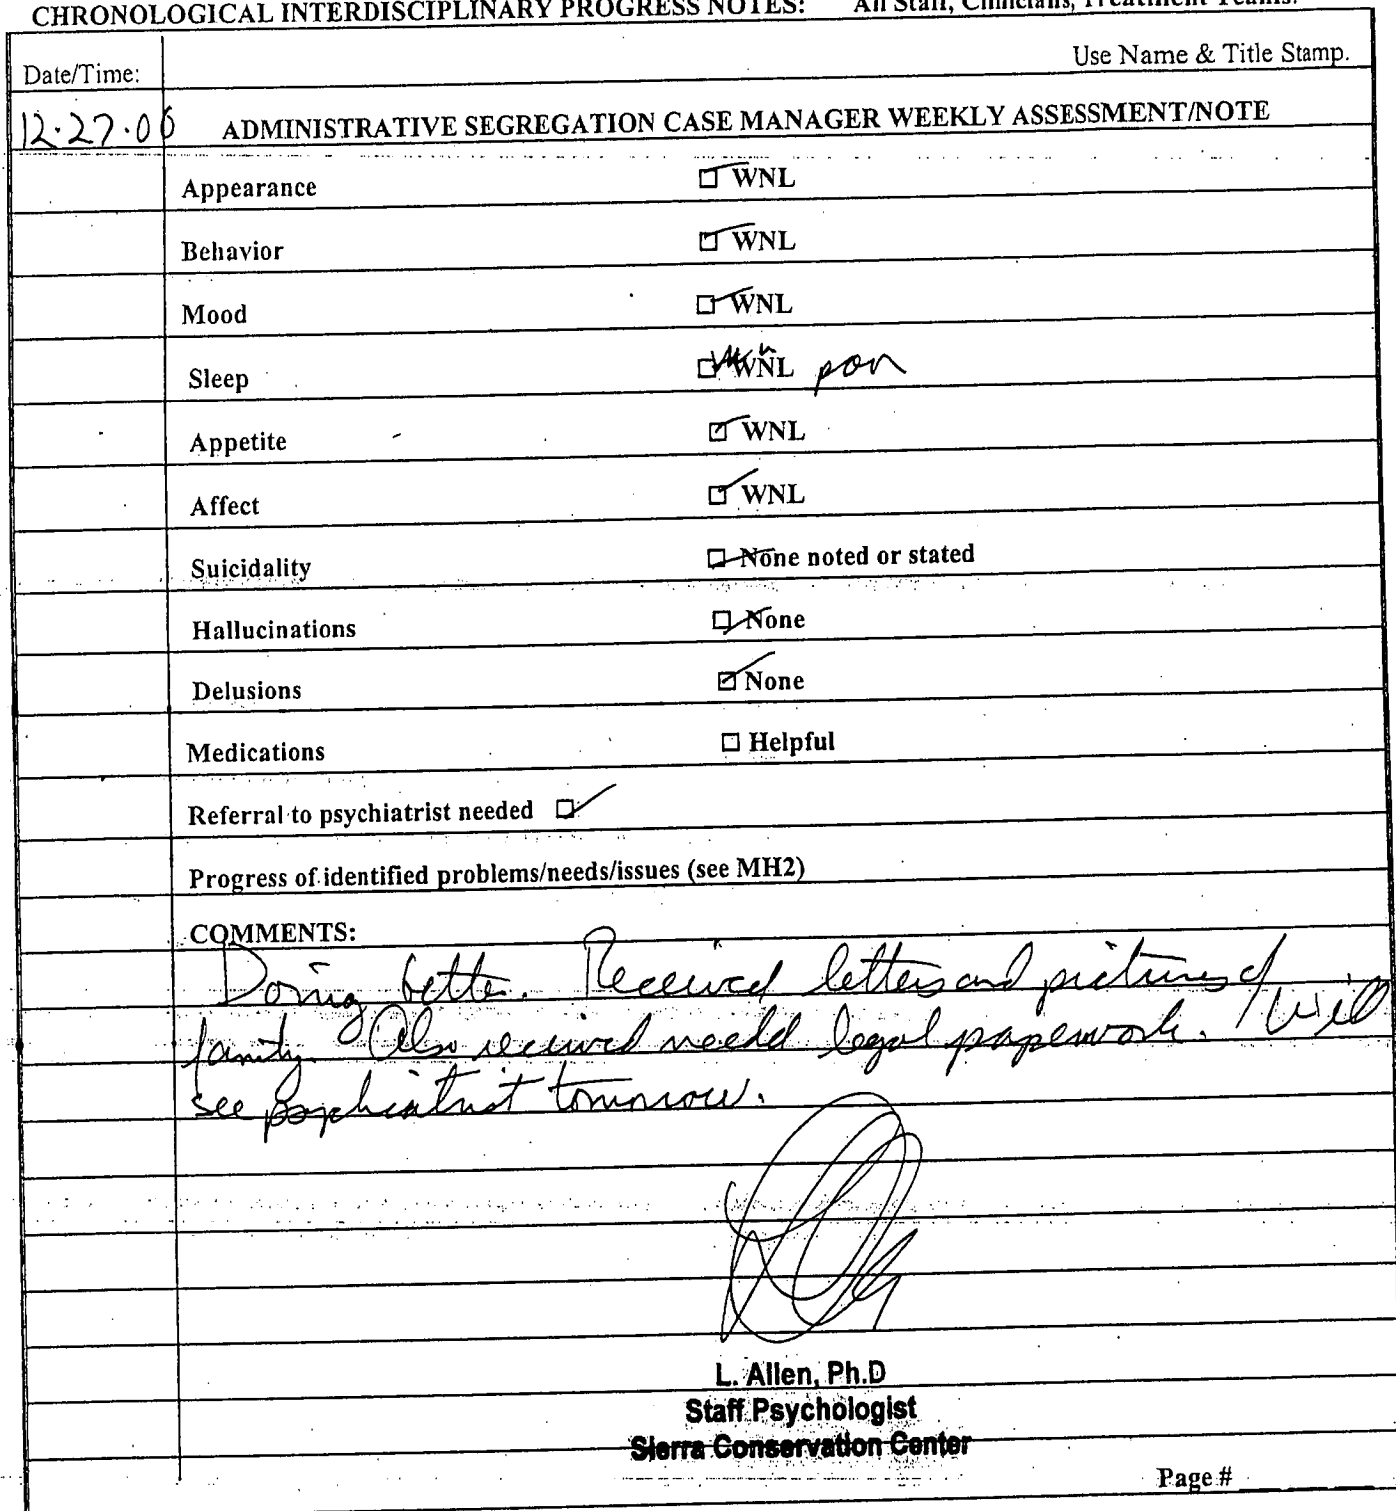 CHRONOLOGICAL INTERDISCIPLINARY PROGRESS NOTES: All Staff, Clinicians, Treatment Teams.
Use Name & Title Stamp.
Date/Time:
12·27·06 ADMINISTRATIVE SEGREGATION CASE MANAGER WEEKLY ASSESSMENT/NOTE
Appearance WNL
Behavior WNL
Mood WNL
Sleep WNL
Appetite WNL
Affect WNL
Suicidality None noted or stated
Hallucinations None
Delusions None
Medications Helpful
Referral to psychiatrist needed
Progress of identified problems/needs/issues (see MH2)
COMMENTS:
Doing better. Received letters and pictures of
family. Also received needed legal paperwork. Will
see psychiatrist tomorrow.
L. Allen, Ph.D
Staff Psychologist
Sierra Conservation Center
Page #